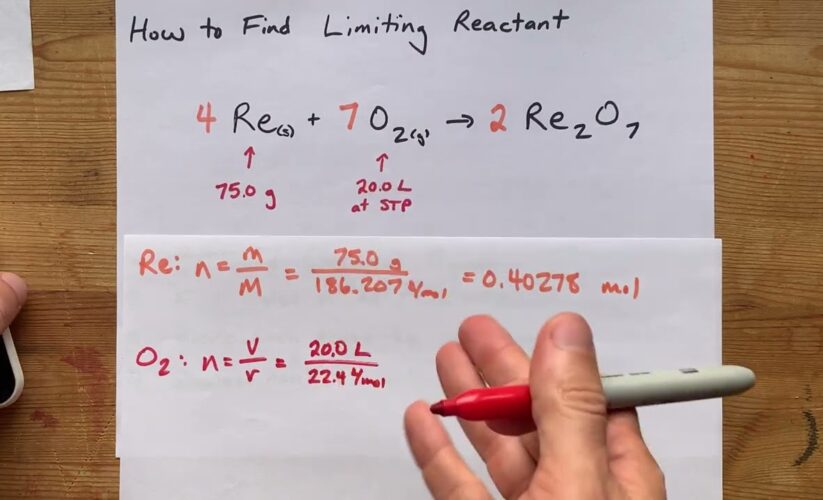 How to Find Limiting Reactant
4 Re(s) + 7 O2(g) → 2 Re2O7
↑ ↑
75.0 g 20.0 L
at STP
Re: n = m/M = 75.0 g/186.207 g/mol = 0.40278 mol
O2: n = V/r = 20.0 L/22.4 L/mol